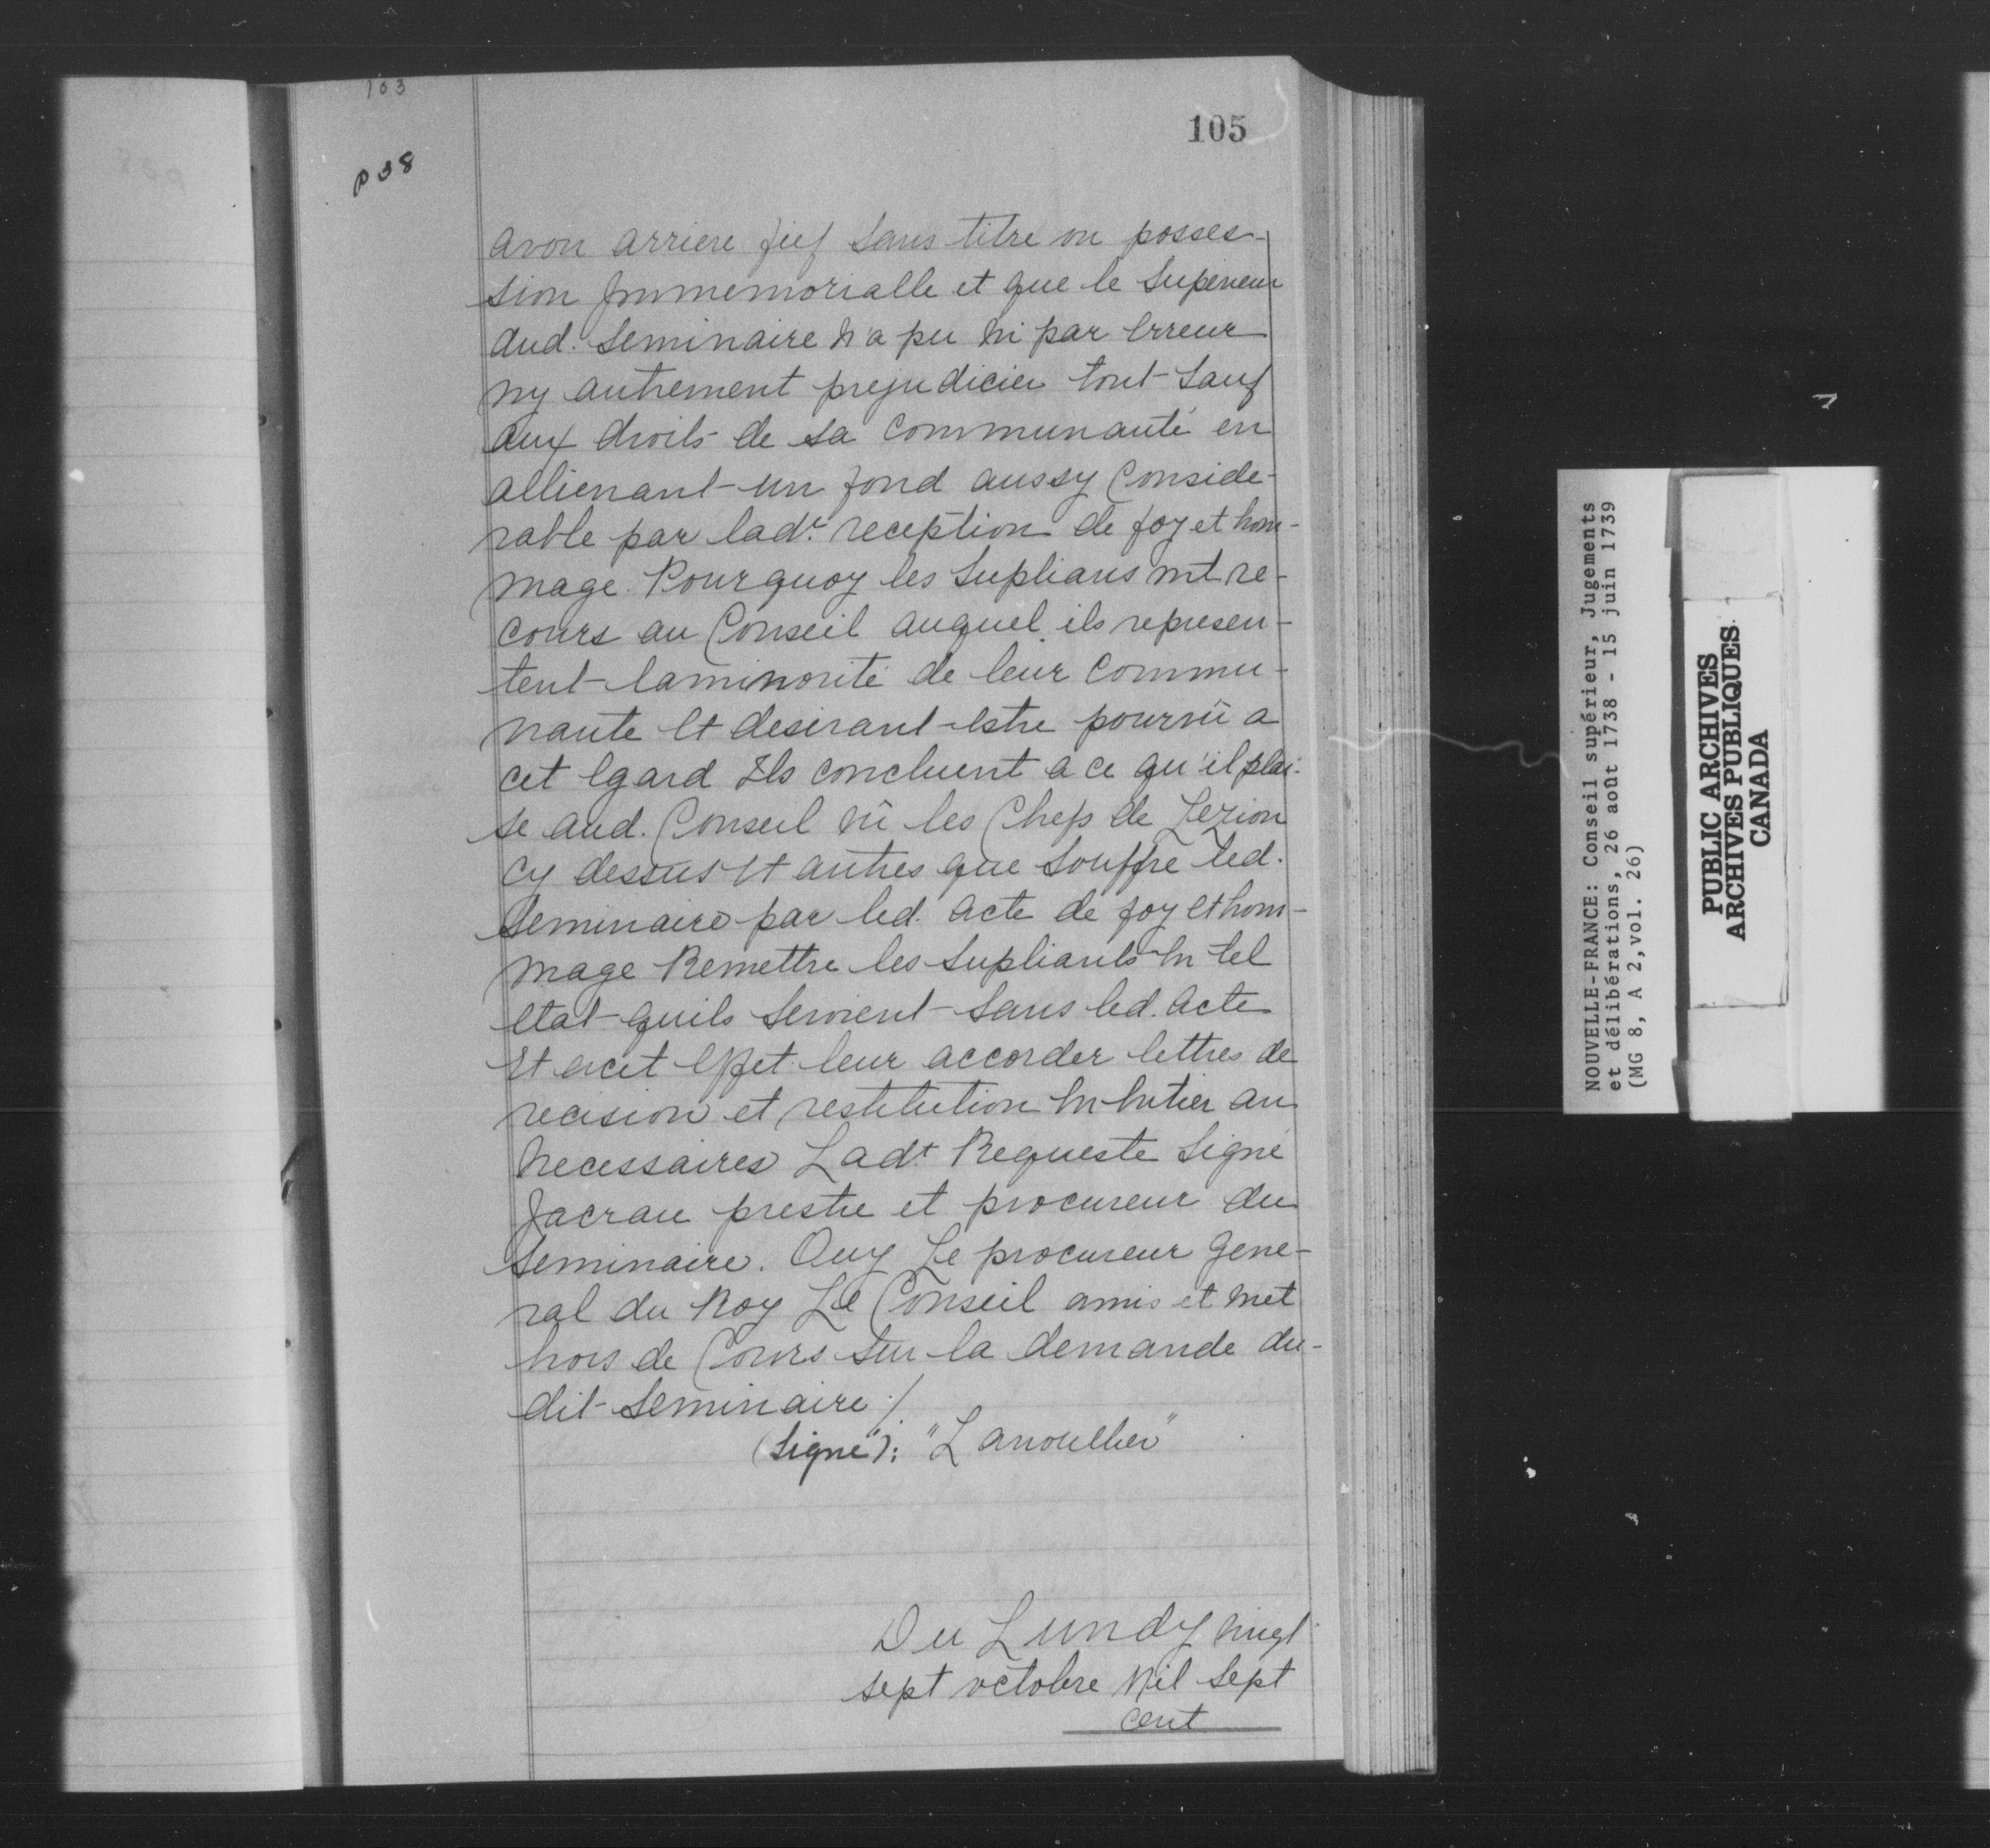 103
105
p 38
avon arriere fief sans titre ou posses-
sion Jmmemorialle et que le Superieur
dud. Seminaire n'a pu ni par Erreur
ny autrement prejudicier tout Sauf
aux droits de sa Communauté en
allienant un fond aussy Conside-
rable par lad.e reception de foy et hom-
mage. Pourquoy les Suplians ont re-
cours au Conseil auquel ils represen-
tent laminorité de leur Commu-
nauté Et desirant Estre pourvû a
cet Egard Ils concluent a ce qu'il plai-
se aud. Conseil vû les Chefs de Lezion
cy dessus Et autres que Souffre led.
Seminaire par led. acte de foy et hom-
mage Remettre les Supliants En tel
Etat quils Seroient Sans led. acte
Et acet Effet leur accorder lettres de
recision et restitution En Entier au
Necessaires Lad.t Requeste Signé
Jacrau prestre et procureur du
Seminaire. Ouy Le procureur Gene-
ral du Roy Le Conseil amis et met
hors de Cours Sur la demande du-
dit Seminaire ./.
(Signé"): "Lanoullier"
Du Lundy vingt
sept octobre Mil Sept
cent
NOUVELLE-FRANCE: Conseil supérieur, Jugements
et délibérations, 26 août 1738 - 15 juin 1739
(MG 8, A 2,vol. 26)
PUBLIC ARCHIVES
ARCHIVES PUBLIQUES
CANADA